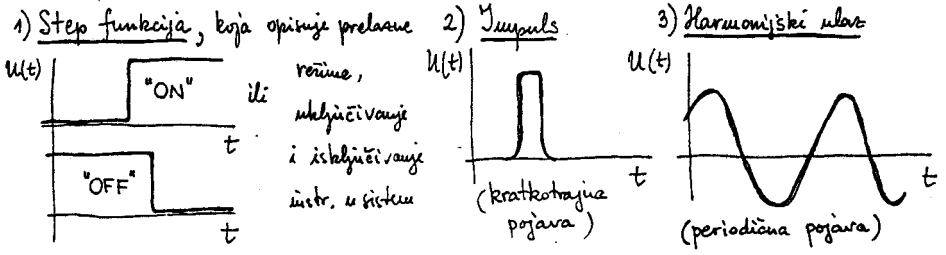 1) Step funkcija, koja opisuje prelazne
režime,
uključivanje
i isključivanje
instr. u sistem
U(t)
"ON"
t
ili
"OFF"
t
2) Impuls
U(t)
t
(kratkotrajna
pojava)
3) Harmonijski ulaz
U(t)
t
(periodična pojava)